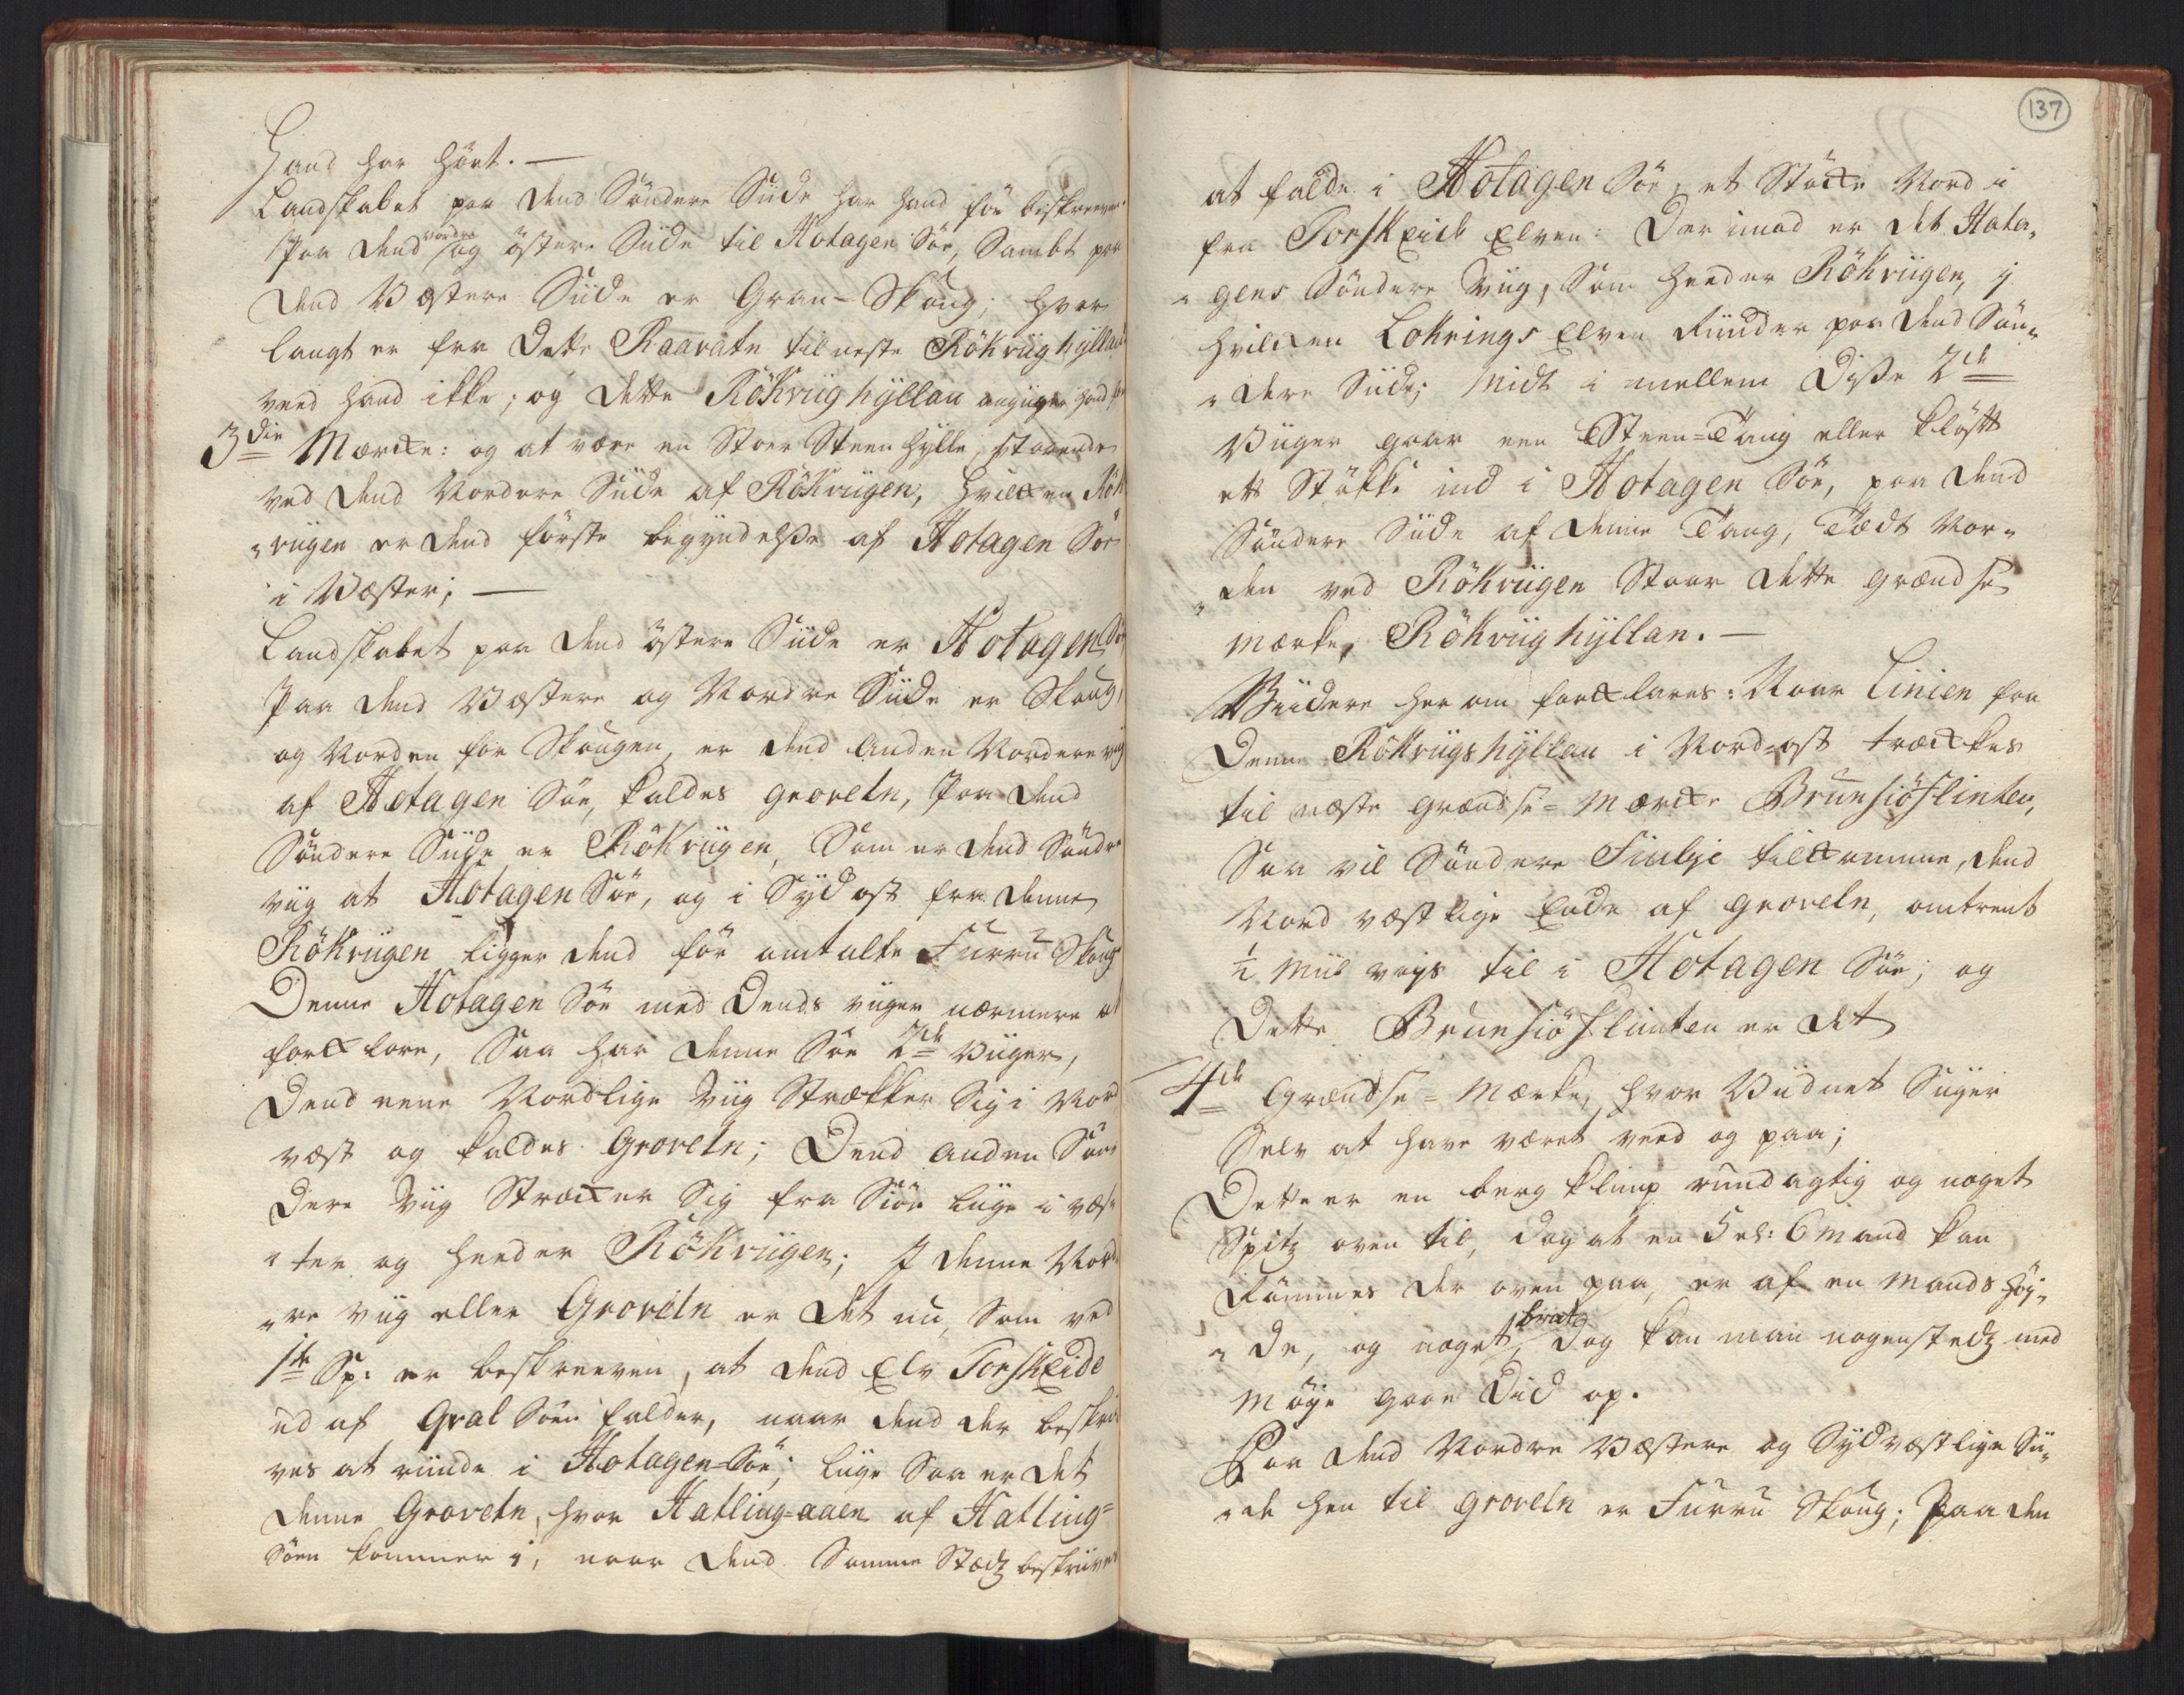 Hand har hört. —
Landskabet paa dend Söndere Siide har hand för beskreeven
Paa dend nordre og östere Siide til Hotagen Söe, Sambt paa
dend Væstere Siide er Gran-Skoug; hvor
langt er fra dette Raavatn til neste Rökviighyllan
veed hand ikke; og dette Rökviighyllan angiiver hand for
3die Mærcke: og at være en Stoer Steen hylle, staaende
ved dend Nordere Siide af Rökviigen; hvilcken Rök
viigen er dend förste begyndelße af Hotagen Söe
i Væster; —
Landskabet paa dend östere Siide er Hotagen Söe
Paa dend Væstere og Nordre Siide er Skoug,
og Norden for Skougen, er dend anden Nordere viig
af Hotagen Söe, kaldes Groveln, Paa dend
Söndere Siide er Rökviigen, Som er dend Söndre
viig at Hotagen Söe, og i Sydost fra denne
Rökviigen ligger dend för omtalte Furru Skoug
Denne Hotagen Söe med dends viiger nærmere at
forcklare, Saa har denne Söe 2de Viiger,
Dend eene Nordlige Viig Strækker Sig i Nord
væst og kaldes Groveln; Dend anden Sön
dere Viig Strecker Sig fra Siön liige i væs
ter og heeder Rökviigen; I denne Nord
re viig eller Groveln er det nu, Som ved
1te Sp: er beskreeven, at dend Elv Torskeide
ud af Gral Söen falder, naar dend der beskri
ves at riinde i Hotagen=Söe; liige Saa er det
denne Groveln, hvor Hatling=aaen af Hatling=
Söen kommer i, naar dend Samme Stædz beskriives
137
at falde i Hotagen Söe, et Stöcke Nord i
fra Torskeide Elven: Der imod er det Hota,
gens Söndere Viig, Som heeder Rökviigen, i
hvilcken Lokrings Elven Riinder paa dend Sön,
dere Siide; Midt i mellem diße 2de
Viiger gaar een Steen=Tang eller Klöfft
ett Stökke ind i Hotagen Söe, paa dend
Söndere Siide af denne Tang, Tædt Nor,
den ved Rökviigen Staar dette grændse
mærke, Rökviighyllan. —
Viidere her om forcklares: Naar Linien fra
Denne Rökviigshyllan i Nord=ost træckkes
til næste grændse=Mærcke Brunsiöflinten,
Saa vil Söndere Finlje tilkomme, dend
Nord væstlige Ende af groveln, omtrent
½ Miil veys til i Hotagen Söe; og
Dette Brunsiöflinten er det
4de Grændse=Mærke, hvor Viidnet Siiger
Selv at have været veed og paa;
Dette er en berg klimp rundagtig og noget
Spitz oven til, dog at en 5 el: 6 mand kan
Rümmes der oven paa, er af en Mands höy,
de, og noget brat, dog kan man nogenstedz med
Möye gaae did op.
Paa dend Nordre Væstere og Sydvæstlige Sii,
de hen til groveln er Furru Skoug; Paa den